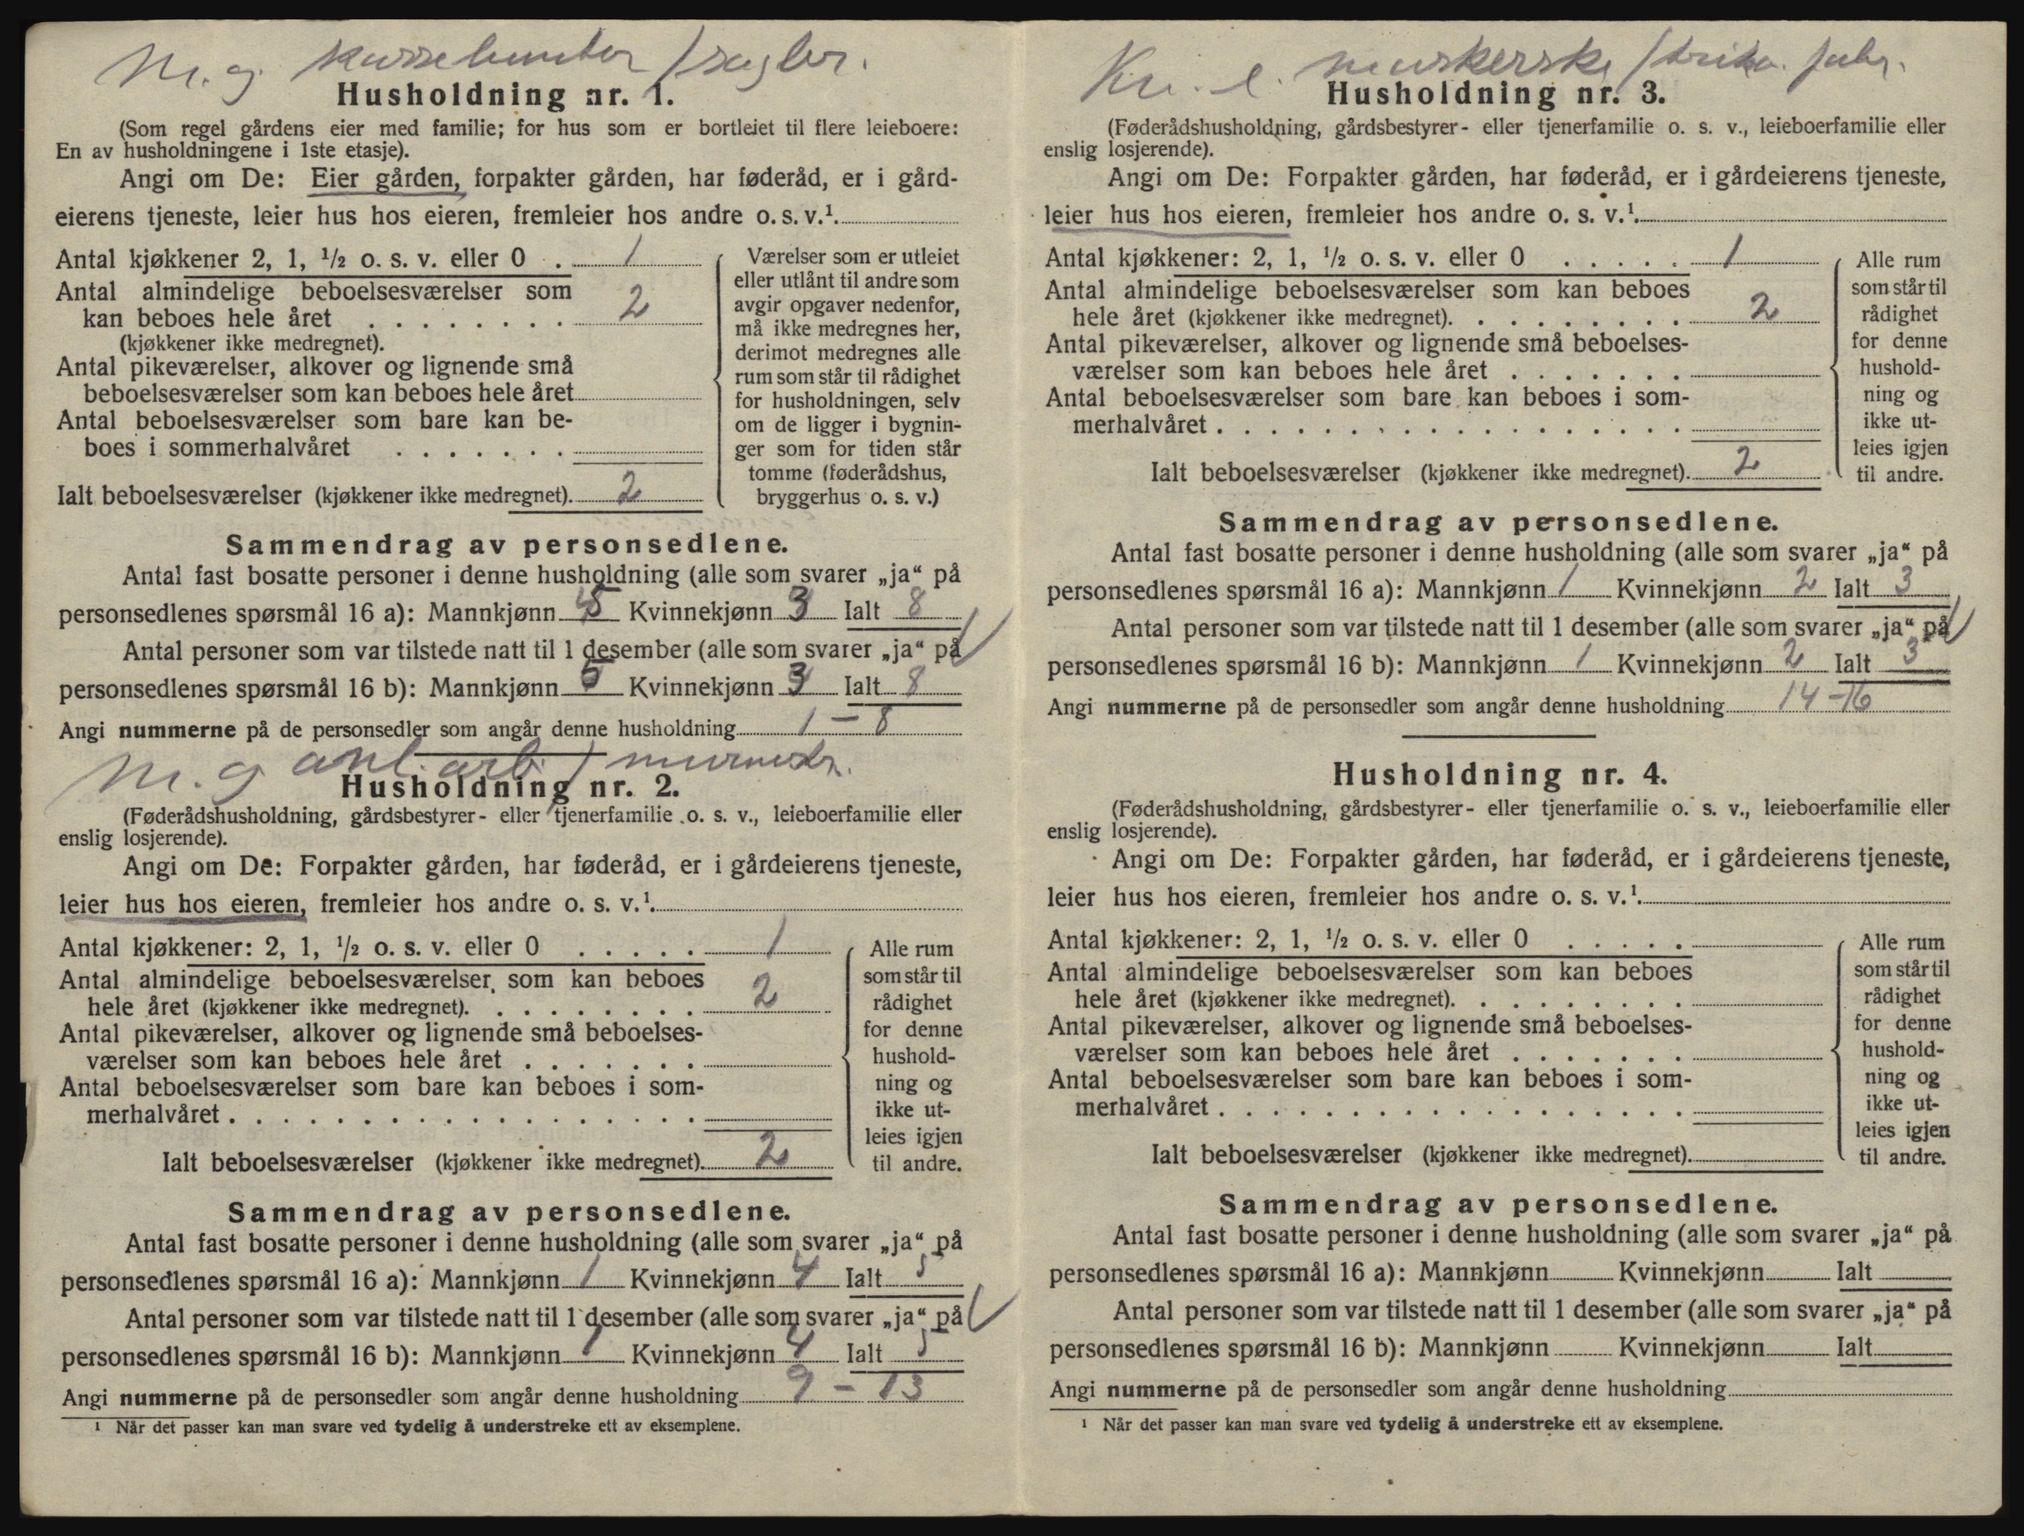 M. g.
Husholdning nr. 1.
(Som regel gårdens eier med familie; for hus som er bortleiet til flere leieboere:
En av husholdningene i 1ste etasje).
Angi om De: Eier gården, forpakter gården, har føderåd, er i gård-
eierens tjeneste, leier hus hos eieren, fremleier hos andre o. s. v.¹
Antal kjøkkener 2, 1, ½ o. s. v. eller 0 . 1
Antal almindelige beboelsesværelser som
kan beboes hele året . . . . . . . . 2
(kjøkkener ikke medregnet).
Antal pikeværelser, alkover og lignende små
beboelsesværelser som kan beboes hele året
Antal beboelsesværelser som bare kan be-
boes i sommerhalvåret . . . . . . .
Ialt beboelsesværelser (kjøkkener ikke medregnet). 2
Værelser som er utleiet
eller utlånt til andre som
avgir opgaver nedenfor,
må ikke medregnes her,
derimot medregnes alle
rum som står til rådighet
for husholdningen, selv
om de ligger i bygnin-
ger som for tiden står
tomme (føderådshus,
bryggerhus o. s. v.)
Sammendrag av personsedlene.
Antal fast bosatte personer i denne husholdning (alle som svarer „ja“ på
personsedlenes spørsmål 16 a): Mannkjønn 5 Kvinnekjønn 3 Ialt 8
Antal personer som var tilstede natt til 1 desember (alle som svarer „ja“ på
personsedlenes spørsmål 16 b): Mannkjønn 5 Kvinnekjønn 3 Ialt 8
Angi nummerne på de personsedler som angår denne husholdning 1 – 8
M. g. anl. arb. /
Husholdning nr. 2.
(Føderådshusholdning, gårdsbestyrer- eller tjenerfamilie o. s. v., leieboerfamilie eller
enslig losjerende).
Angi om De: Forpakter gården, har føderåd, er i gårdeierens tjeneste,
leier hus hos eieren, fremleier hos andre o. s. v.¹
Antal kjøkkener: 2, 1, ½ o. s. v. eller 0 . . . . . 1
Antal almindelige beboelsesværelser som kan beboes
hele året (kjøkkener ikke medregnet). . . . . . . . . 2
Antal pikeværelser, alkover og lignende små beboelses-
værelser som kan beboes hele året . . . . . . .
Antal beboelsesværelser som bare kan beboes i som-
merhalvåret . . . . . . . . . . . . . . . . . .
Ialt beboelsesværelser (kjøkkener ikke medregnet). 2
Alle rum
som står til
rådighet
for denne
hushold-
ning og
ikke ut-
leies igjen
til andre.
Sammendrag av personsedlene.
Antal fast bosatte personer i denne husholdning (alle som svarer „ja“ på
personsedlenes spørsmål 16 a): Mannkjønn 1 Kvinnekjønn 4 Ialt 5
Antal personer som var tilstede natt til 1 desember (alle som svarer „ja“ på
personsedlenes spørsmål 16 b): Mannkjønn 1 Kvinnekjønn 4 Ialt 5
Angi nummerne på de personsedler som angår denne husholdning 9 – 13
¹ Når det passer kan man svare ved tydelig å understreke ett av eksemplene.
Husholdning nr. 3.
(Føderådshusholdning, gårdsbestyrer- eller tjenerfamilie o. s. v., leieboerfamilie eller
enslig losjerende).
Angi om De: Forpakter gården, har føderåd, er i gårdeierens tjeneste,
leier hus hos eieren, fremleier hos andre o. s. v.¹
Antal kjøkkener: 2, 1, ½ o. s. v. eller 0 . . . . . 1
Antal almindelige beboelsesværelser som kan beboes
hele året (kjøkkener ikke medregnet). . . . . . . . . 2
Antal pikeværelser, alkover og lignende små beboelses-
værelser som kan beboes hele året . . . . . . .
Antal beboelsesværelser som bare kan beboes i som-
merhalvåret . . . . . . . . . . . . . . . . . .
Ialt beboelsesværelser (kjøkkener ikke medregnet). 2
Alle rum
som står til
rådighet
for denne
hushold-
ning og
ikke ut-
leies igjen
til andre.
Sammendrag av personsedlene.
Antal fast bosatte personer i denne husholdning (alle som svarer „ja“ på
personsedlenes spørsmål 16 a): Mannkjønn 1 Kvinnekjønn 2 Ialt 3
Antal personer som var tilstede natt til 1 desember (alle som svarer „ja“ på
personsedlenes spørsmål 16 b): Mannkjønn 1 Kvinnekjønn 2 Ialt 3
Angi nummerne på de personsedler som angår denne husholdning 14–16
Husholdning nr. 4.
(Føderådshusholdning, gårdsbestyrer- eller tjenerfamilie o. s. v., leieboerfamilie eller
enslig losjerende).
Angi om De: Forpakter gården, har føderåd, er i gårdeierens tjeneste,
leier hus hos eieren, fremleier hos andre o. s. v.¹
Antal kjøkkener: 2, 1, ½ o. s. v. eller 0 . . . . .
Antal almindelige beboelsesværelser som kan beboes
hele året (kjøkkener ikke medregnet). . . . . . . . .
Antal pikeværelser, alkover og lignende små beboelses-
værelser som kan beboes hele året . . . . . . .
Antal beboelsesværelser som bare kan beboes i som-
merhalvåret . . . . . . . . . . . . . . . . . .
Ialt beboelsesværelser (kjøkkener ikke medregnet).
Alle rum
som står til
rådighet
for denne
hushold-
ning og
ikke ut-
leies igjen
til andre.
Sammendrag av personsedlene.
Antal fast bosatte personer i denne husholdning (alle som svarer „ja“ på
personsedlenes spørsmål 16 a): Mannkjønn Kvinnekjønn Ialt
Antal personer som var tilstede natt til 1 desember (alle som svarer „ja“ på
personsedlenes spørsmål 16 b): Mannkjønn Kvinnekjønn Ialt
Angi nummerne på de personsedler som angår denne husholdning
¹ Når det passer kan man svare ved tydelig å understreke ett av eksemplene.